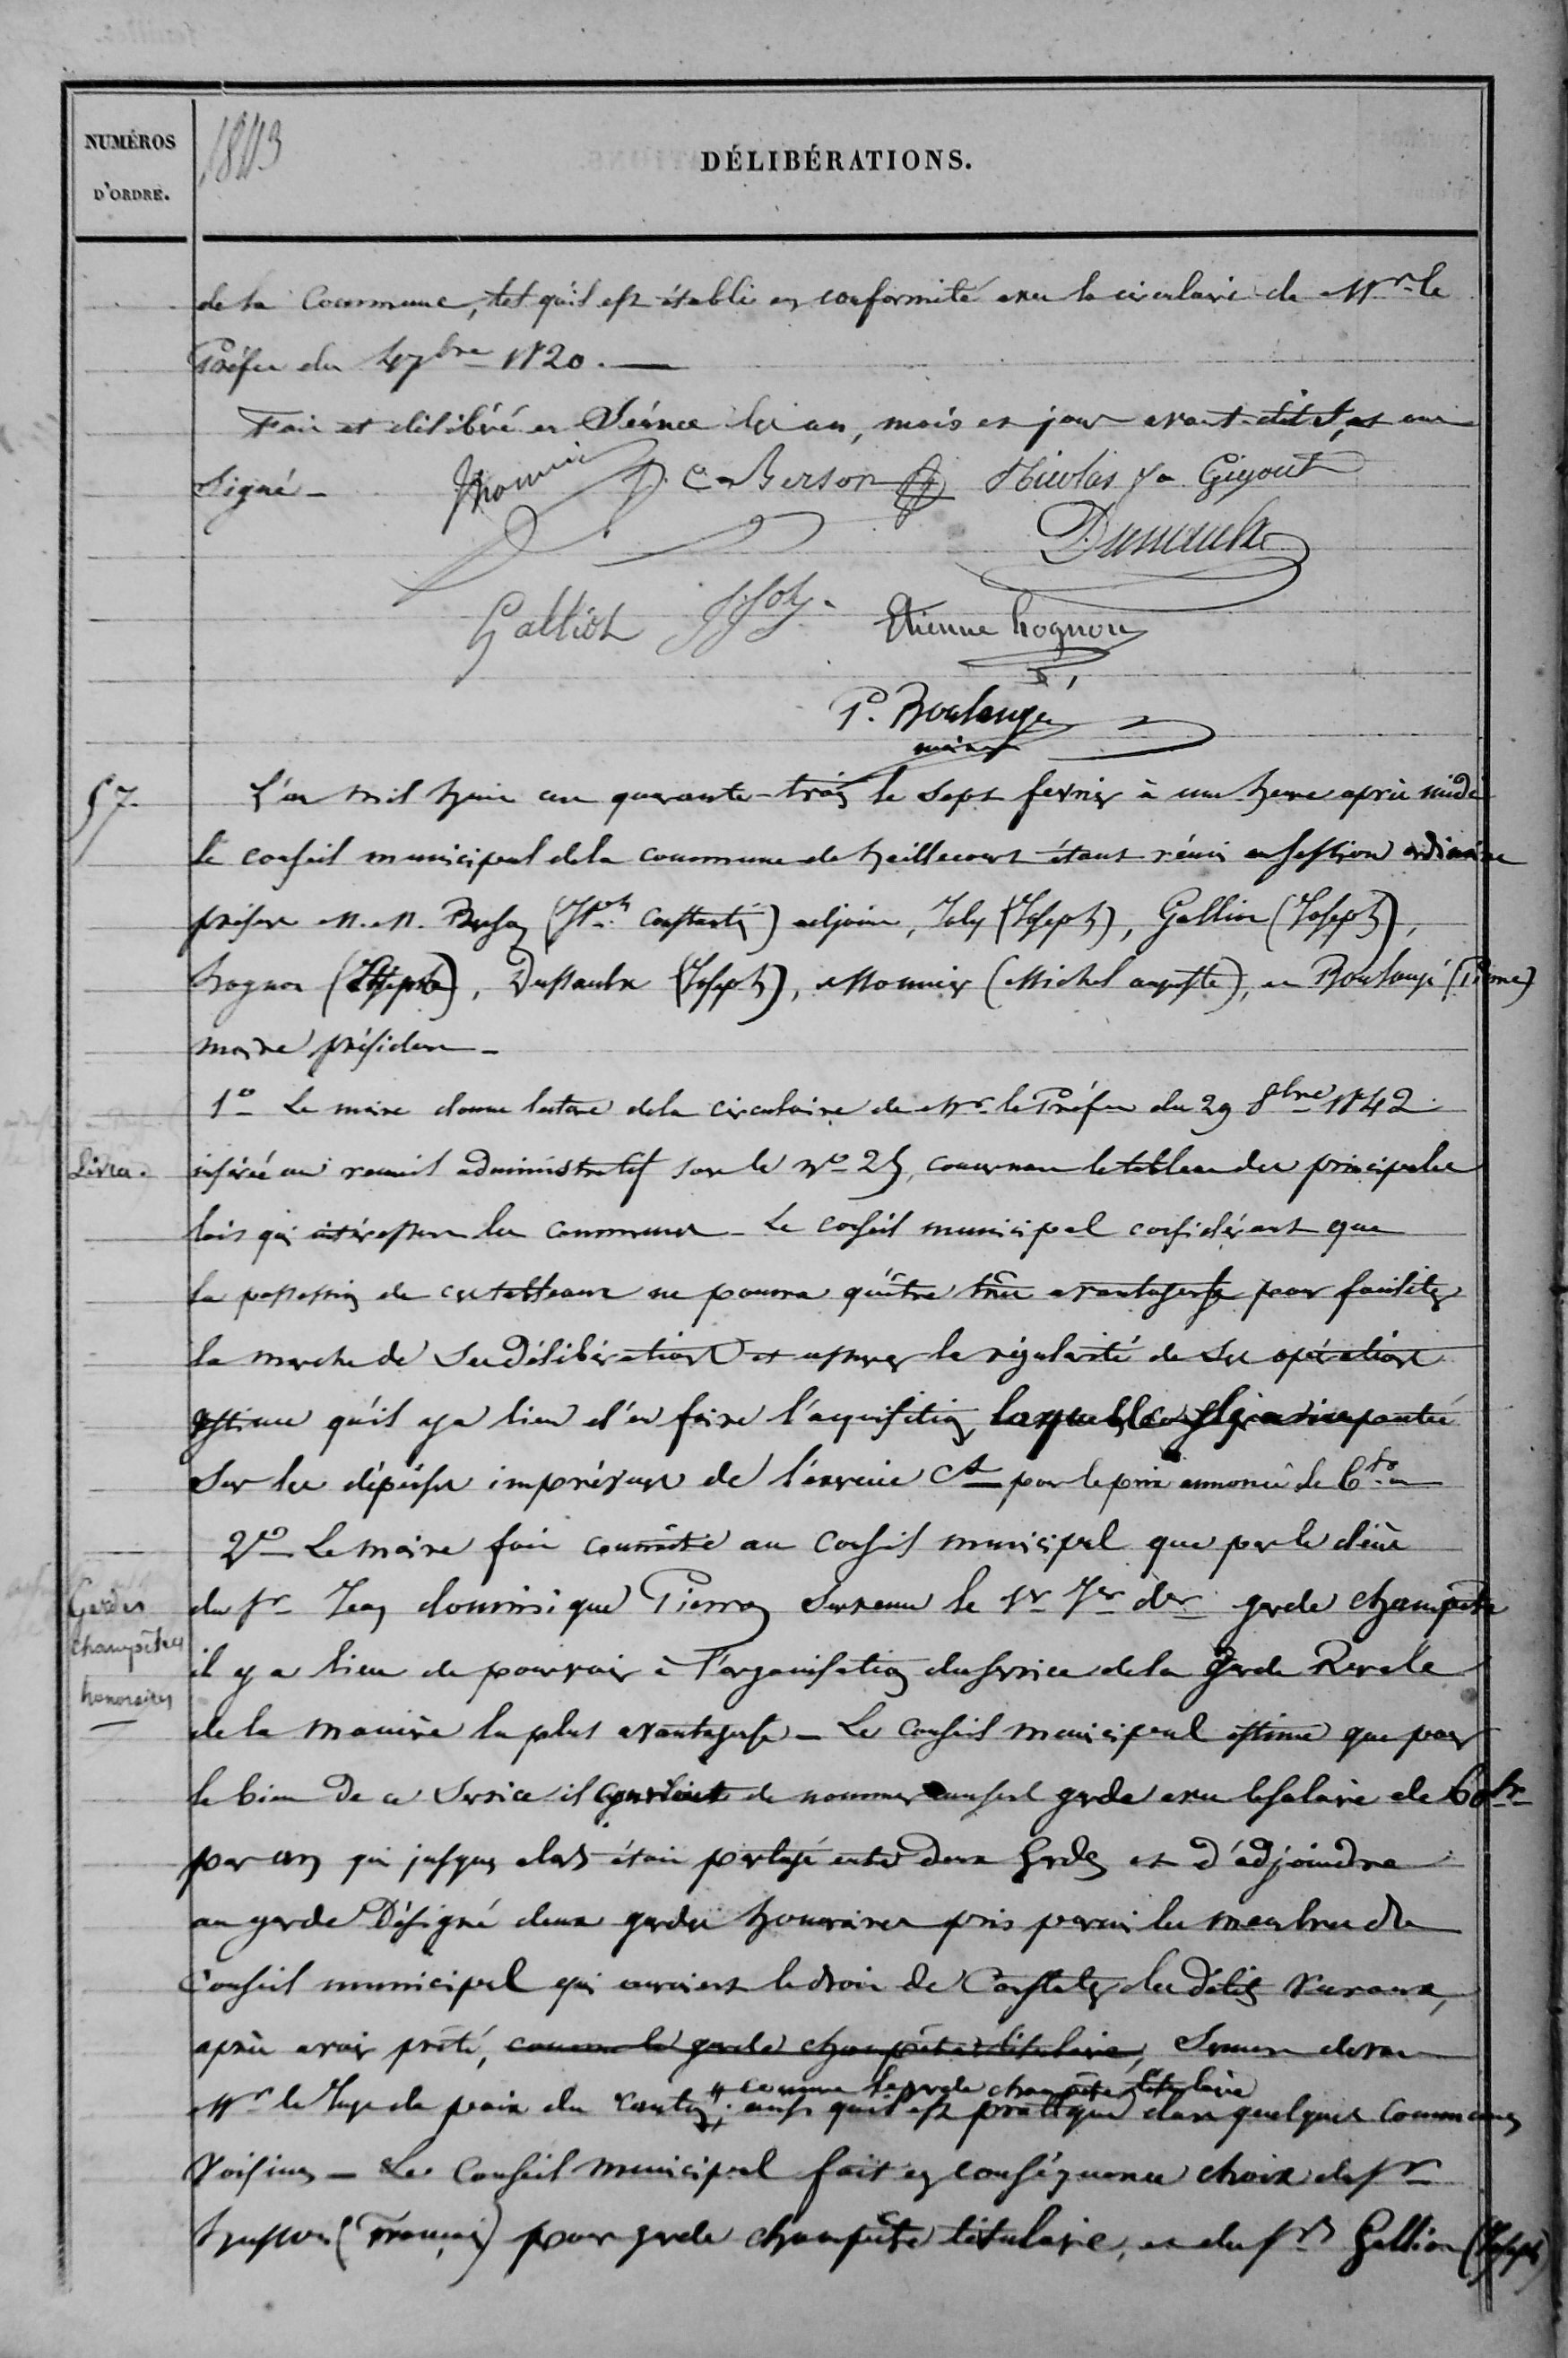 NUMÉROS
D'ORDRE.
1843
DÉLIBÉRATIONS.
de la Commune, tel qu'il est établi en conformité avec la circulaire de Mr le
Préfet du 1820.
Fait et délibéré en Séance les an, mois et jour avant-dits, et ont
signé -
Monnier C Berson Nicolas Gigout
Dussaulx
Galliot J Joly
Etienne hognon
P. Boulangé
maire
57.
L'an mil huit cent quarante-trois le sept fevrier à une heure après midi
le conseil municipal de la commune de heillecourt étant réuni en session ordinaire
présent M.M. Berson (Constantin) adjoint, Joly (Joseph), Galliot (Joseph),
hognon, Dussaulx (Joseph), Monnier (Michel auguste), et Boulangé (Pierre)
maire président -
1° Le maire donne lecture de la circulaire de Mr le Préfet du 29 8bre 1842
Livres.
insérée au recueil administratif sous le N° 25, concernant le tableau des principales
lois qui intéressent les communes - Le conseil municipal considérant que
la possession de ces tableaux ne pourra qu'être très avantageuse pour faciliter
la marche de ses délibérations et assurer la régularité de ses opérations
estime qu'il y a lieu d'en faire l'acquisition, laquelle imputée
sur les dépenses imprévues de l'exercice Ct pour le prix annoncé de 6 fr
2° Le maire fait connaître au Conseil municipal que par le décès
Gardes
champêtres
honoraires
du Sr Jean dominique Pierron survenu le 1er der garde champêtre
il y a lieu de pourvoir à l'organisation du service de la garde Rurale
de la manière la plus avantageuse - Le Conseil municipal estime que pour
le bien de ce service il convient de nommer un seul garde avec le salaire de 60 fr
par an qui jusqu'alors était partagé entre deux gardes et d'adjoindre
au garde Désigné deux gardes honoraires pris parmi les membres du
Conseil municipal qui auraient le droit de constater les délits ruraux,
après avoir prêté, comme le garde champêtre titulaire, serment devant
comme le garde champêtre titulaire
Mr le Juge de paix du canton; ainsi qu'il est pratiqué dans quelques communes
voisines - Le Conseil municipal fait en conséquence choix du Sr
husson (François) pour garde champêtre titulaire, et des Srs Galliot (Joseph)